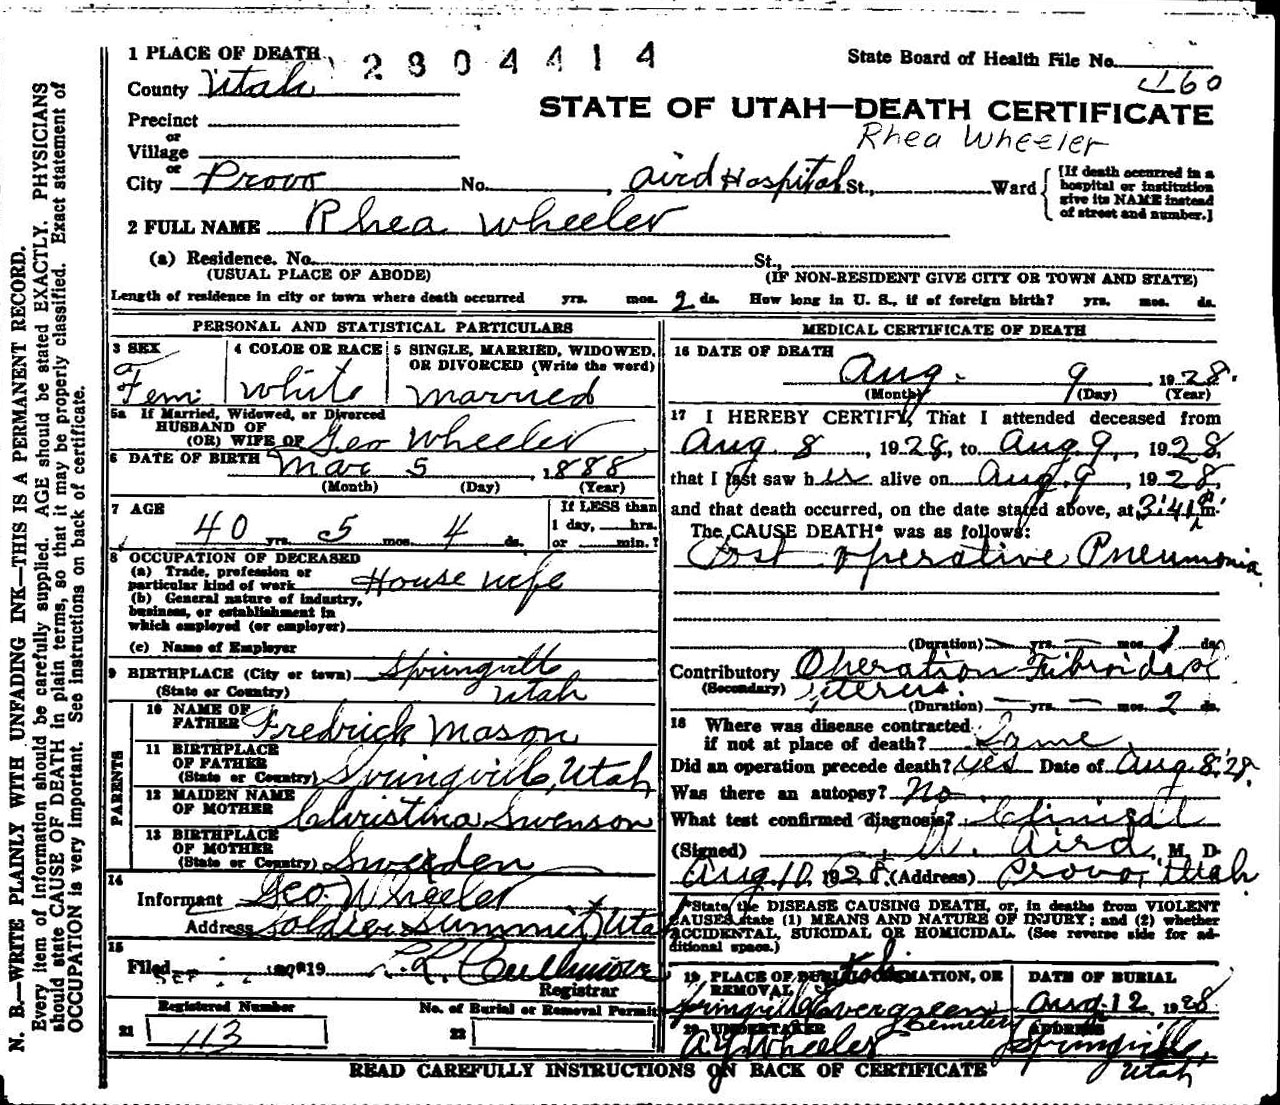 1 PLACE OF DEATH 2804414
State Board of Health File No.
County Utah
160
STATE OF UTAH—DEATH CERTIFICATE
Precinct
Rhea Wheeler
or
Village
or
City Provo No. , Aird Hospital St., Ward
[If death occurred in a hospital or institution give its NAME instead of street and number.]
2 FULL NAME Rhea Wheeler
(a) Residence. No. St.,
(USUAL PLACE OF ABODE) (IF NON-RESIDENT GIVE CITY OR TOWN AND STATE)
Length of residence in city or town where death occurred yrs. mos. 2 ds. How long in U. S., if of foreign birth? yrs. mos. ds.
PERSONAL AND STATISTICAL PARTICULARS
3 SEX Fem
4 COLOR OR RACE White
5 SINGLE, MARRIED, WIDOWED, OR DIVORCED (Write the word) Married
5a If Married, Widowed, or Divorced
HUSBAND OF
(OR) WIFE OF Geo Wheeler
6 DATE OF BIRTH Mar 5, 1888
(Month) (Day) (Year)
7 AGE 40 yrs. 5 mos. 4 ds.
If LESS than
1 day, hrs.
or min.?
8 OCCUPATION OF DECEASED
(a) Trade, profession or
particular kind of work House wife
(b) General nature of industry,
business, or establishment in
which employed (or employer)
(c) Name of Employer
9 BIRTHPLACE (City or town) Springville
(State or Country) Utah
PARENTS
10 NAME OF
FATHER Fredrick Mason
11 BIRTHPLACE
OF FATHER
(State or Country) Springville, Utah
12 MAIDEN NAME
OF MOTHER Christina Swenson
13 BIRTHPLACE
OF MOTHER
(State or Country) Sweeden
14
Informant Geo. Wheeler
Address Soldier Summit, Utah
15
Filed 19
Registrar
Registered Number No. of Burial or Removal Permit
21 113 22
MEDICAL CERTIFICATE OF DEATH
16 DATE OF DEATH
Aug. 9, 1928.
(Month) (Day) (Year)
17 I HEREBY CERTIFY, That I attended deceased from
Aug 8, 1928, to Aug 9, 1928,
that I last saw her alive on Aug. 9, 1928,
and that death occurred, on the date stated above, at 3:41 m.
The CAUSE DEATH* was as follows:
Post operative Pneumonia
(Duration) yrs. — mos. 1 ds.
Contributory Operation Fibroids of
(Secondary) uterus.
(Duration) — yrs. — mos. 2 ds.
18 Where was disease contracted
if not at place of death? Same
Did an operation precede death? yes Date of Aug 8, '28
Was there an autopsy? No
What test confirmed diagnosis? Clinical
(Signed) Aird, M. D.
Aug. 10, 1928. (Address) Provo, Utah
*State the DISEASE CAUSING DEATH, or, in deaths from VIOLENT
CAUSES state (1) MEANS AND NATURE OF INJURY; and (2) whether
ACCIDENTAL, SUICIDAL OR HOMICIDAL. (See reverse side for additional space.)
19 PLACE OF BURIAL, CREMATION, OR
REMOVAL Utah
Springville Evergreen Cemetery
DATE OF BURIAL
Aug. 12, 1928
20 UNDERTAKER
A Y Wheeler
ADDRESS
Springville, Utah
READ CAREFULLY INSTRUCTIONS ON BACK OF CERTIFICATE
N. B.—WRITE PLAINLY WITH UNFADING INK—THIS IS A PERMANENT RECORD.
Every item of information should be carefully supplied. AGE should be stated EXACTLY. PHYSICIANS
should state CAUSE OF DEATH in plain terms, so that it may be properly classified. Exact statement of
OCCUPATION is very important. See instructions on back of certificate.